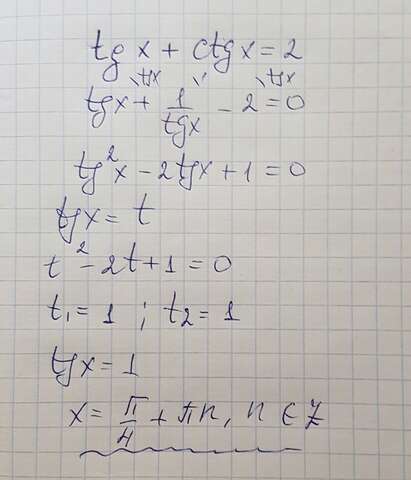 tg x + ctg x = 2
\tgx \' \tgx
tgx + 1/tgx - 2 = 0
tg²x - 2tgx + 1 = 0
tgx = t
t² - 2t + 1 = 0
t₁ = 1 ; t₂ = 1
tgx = 1
x = π/4 + πn, n ∈ Z